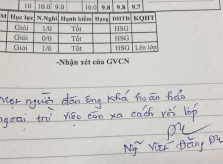 10 10.0 9.0 10.0 9.8 9.8 9.7
M Học lực N.Nghỉ Hạnh kiểm Hạng DHTĐ KQHT
Giỏi 1/0 Tốt HSG
Giỏi 0/0 Tốt HSG
Giỏi 1/0 Tốt HSG Lên lớp
-Nhận xét của GVCN
một người đàn ông khá hoàn hảo
ngoại trừ việc còn xa cách với lớp
Ng Việt Đăng